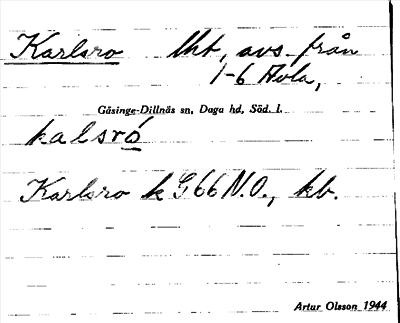 Karlsro lht, avs. från
1-6 Hola,
Gåsinge-Dillnäs sn, Daga hd, Söd. l.
kalsró
Karlsro k G66 N.O., kb.
Artur Olsson 1944